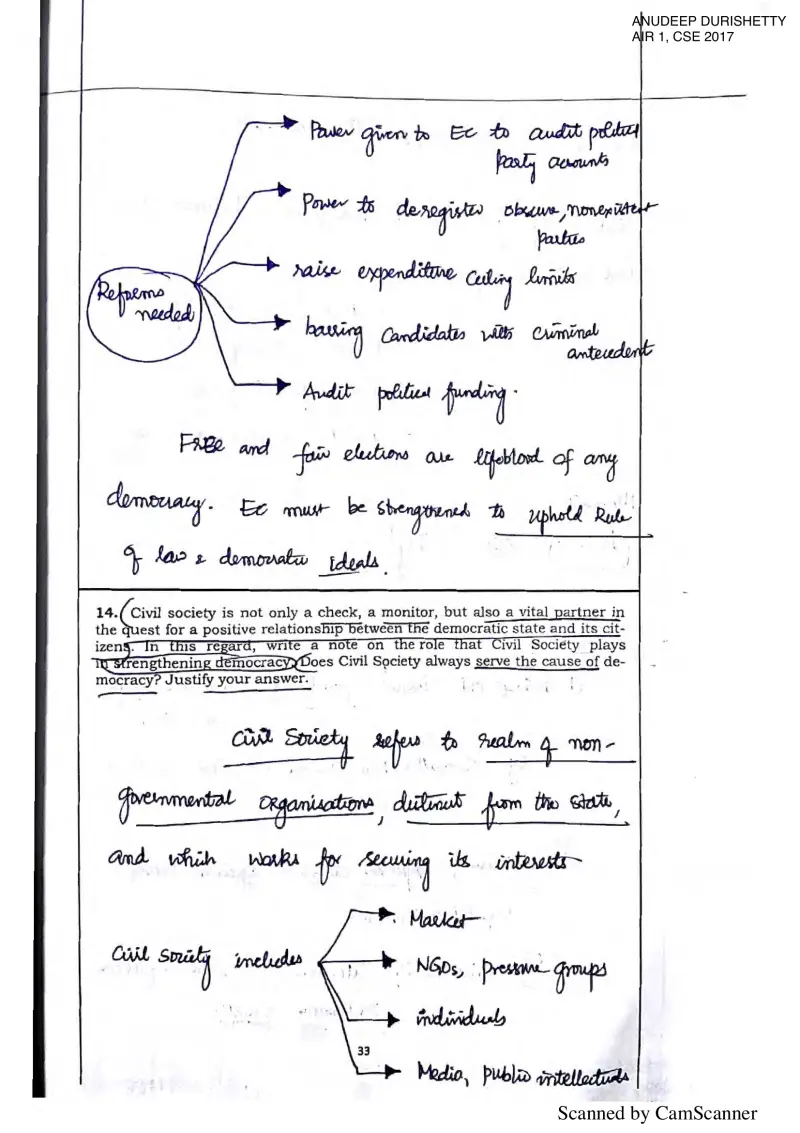 ANUDEEP DURISHETTY
AIR 1, CSE 2017
Power given to EC to audit political
party accounts
Power to deregister obscure, nonexistent
parties
raise expenditure ceiling limits
Reforms
needed
barring candidates with criminal
antecedent
Audit political funding.
FREE and fair elections are lifeblood of any
democracy. EC must be strengthened to uphold Rule
of law & democratic ideals.
14. Civil society is not only a check, a monitor, but also a vital partner in
the quest for a positive relationship between the democratic state and its cit-
izens. In this regard, write a note on the role that Civil Society plays
in strengthening democracy. Does Civil Society always serve the cause of de-
mocracy? Justify your answer.
Civil Society refers to realm of non-
governmental organisations, distinct from the state,
and which works for securing its interests
Market
Civil Society includes
NGOs, pressure groups
individuals
33
Media, public intellectuals
Scanned by CamScanner